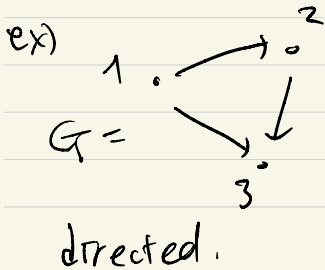 ex)
2
1
G =
3
directed.